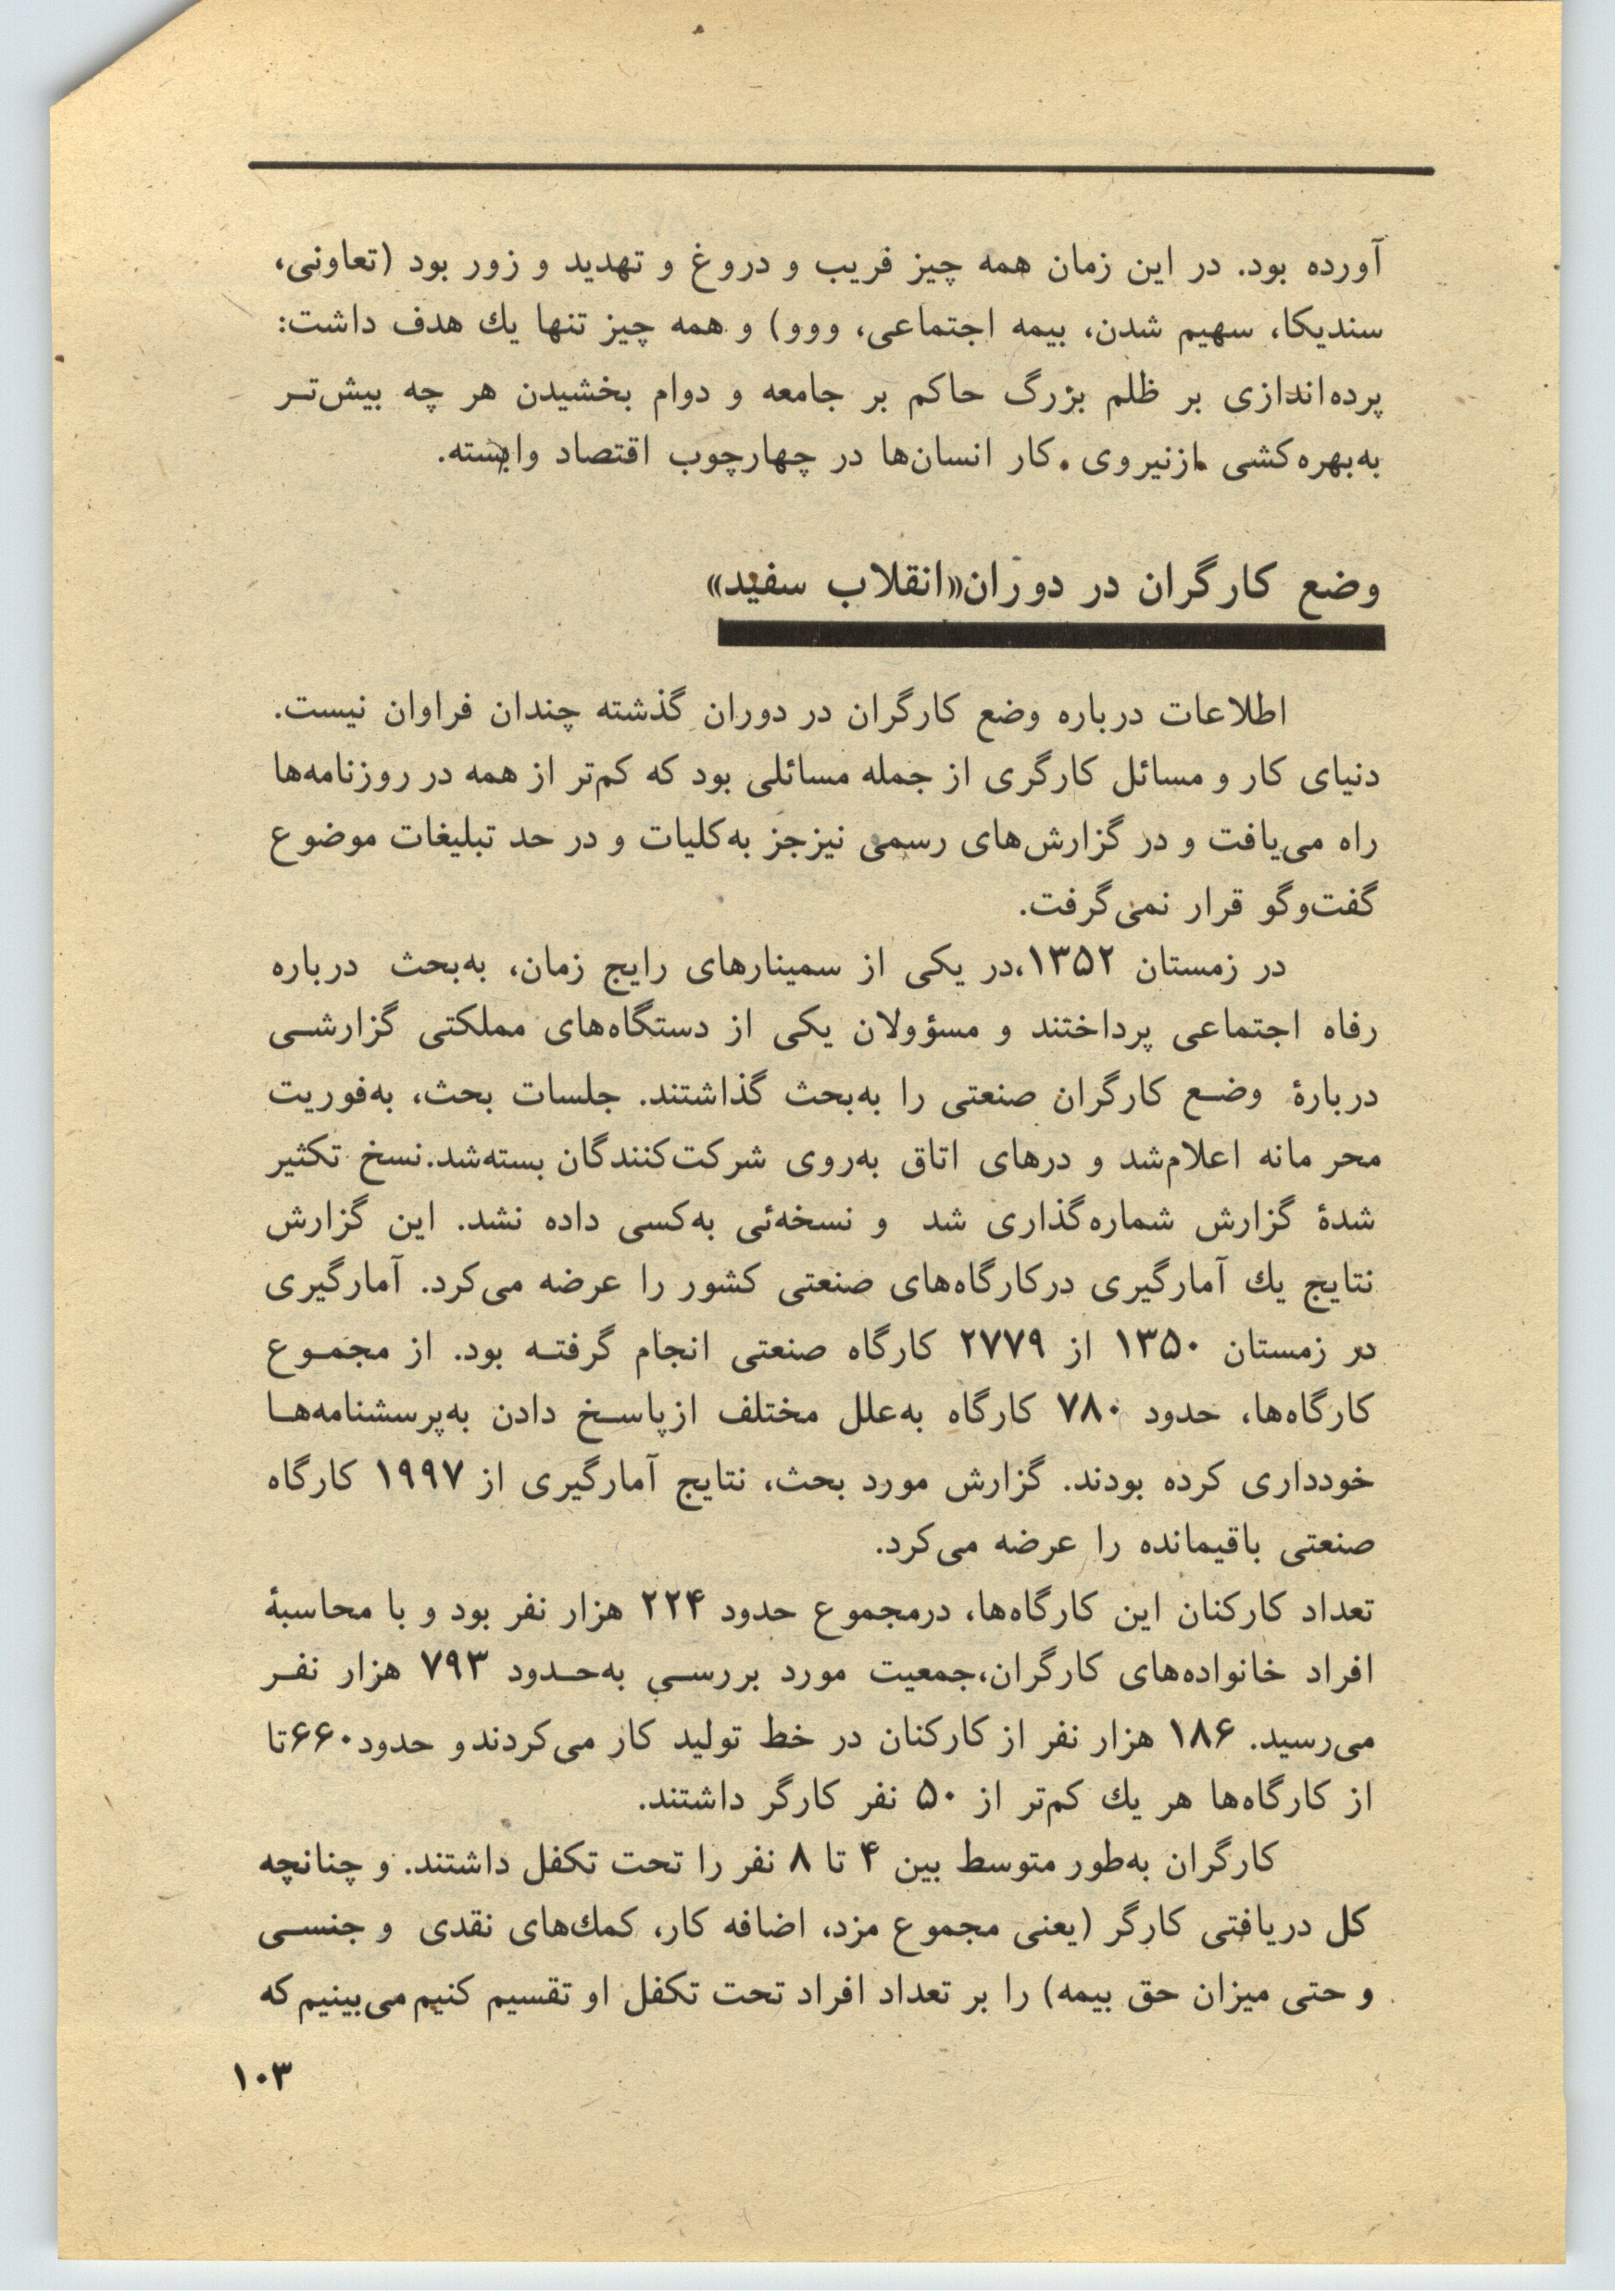 آورده بود. در این زمان همه چیز فریب و دروغ و تهدید و زور بود (تعاونی،
سندیکا، سهیم شدن، بیمه اجتماعی، ووو) و همه چیز تنها یك هدف داشت:
پرده‌اندازی بر ظلم بزرگ حاکم بر جامعه و دوام بخشیدن هر چه بیش‌تر
به‌بهره‌کشی ازنیروی کار انسان‌ها در چهارچوب اقتصاد وابسته.
وضع کارگران در دوران«انقلاب سفید»
اطلاعات درباره وضع کارگران در دوران گذشته چندان فراوان نیست.
دنیای کار و مسائل کارگری از جمله مسائلی بود که کم‌تر از همه در روزنامه‌ها
راه می‌یافت و در گزارش‌های رسمی نیزجز به‌کلیات و در حد تبلیغات موضوع
گفت‌وگو قرار نمی‌گرفت.
در زمستان ۱۳۵۲،در یکی از سمینارهای رایج زمان، به‌بحث درباره
رفاه اجتماعی پرداختند و مسؤولان یکی از دستگاه‌های مملکتی گزارشی
دربارهٔ وضع کارگران صنعتی را به‌بحث گذاشتند. جلسات بحث، به‌فوریت
محرمانه اعلام‌شد و درهای اتاق به‌روی شرکت‌کنندگان بسته‌شد.نسخ تکثیر
شدهٔ گزارش شماره‌گذاری شد و نسخه‌ئی به‌کسی داده نشد. این گزارش
نتایج یك آمارگیری درکارگاه‌های صنعتی کشور را عرضه می‌کرد. آمارگیری
در زمستان ۱۳۵۰ از ۲۷۷۹ کارگاه صنعتی انجام گرفته بود. از مجموع
کارگاه‌ها، حدود ۷۸۰ کارگاه به‌علل مختلف ازپاسخ دادن به‌پرسشنامه‌ها
خودداری کرده بودند. گزارش مورد بحث، نتایج آمارگیری از ۱۹۹۷ کارگاه
صنعتی باقیمانده را عرضه می‌کرد.
تعداد کارکنان این کارگاه‌ها، درمجموع حدود ۲۲۴ هزار نفر بود و با محاسبهٔ
افراد خانواده‌های کارگران،جمعیت مورد بررسی به‌حدود ۷۹۳ هزار نفر
می‌رسید. ۱۸۶ هزار نفر از کارکنان در خط تولید کار می‌کردند و حدود۶۶۰تا
از کارگاه‌ها هر یك کم‌تر از ۵۰ نفر کارگر داشتند.
کارگران به‌طور متوسط بین ۴ تا ۸ نفر را تحت تکفل داشتند. و چنانچه
کل دریافتی کارگر (یعنی مجموع مزد، اضافه کار، کمك‌های نقدی و جنسی
و حتی میزان حق بیمه) را بر تعداد افراد تحت تکفل او تقسیم کنیم می‌بینیم که
۱۰۳